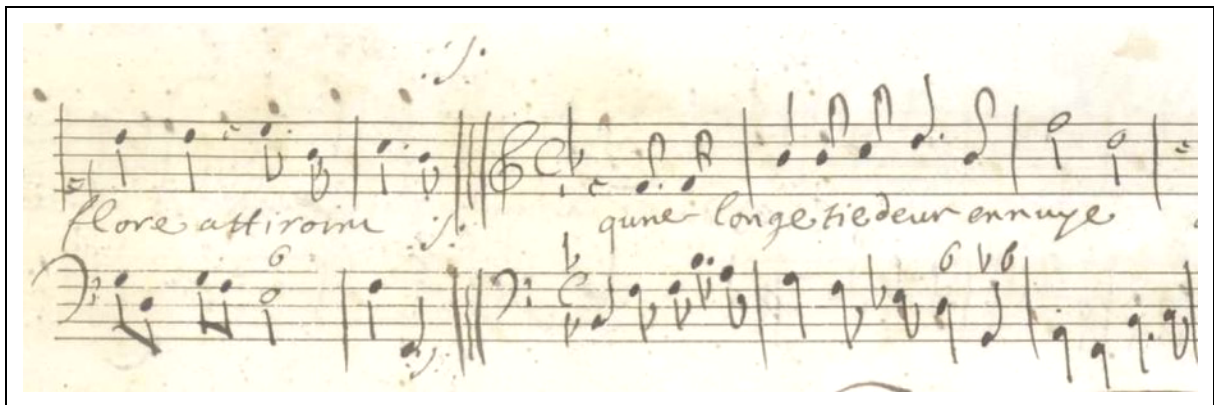 flore attiroint qune longe tiedeur ennuye
6 6 b6